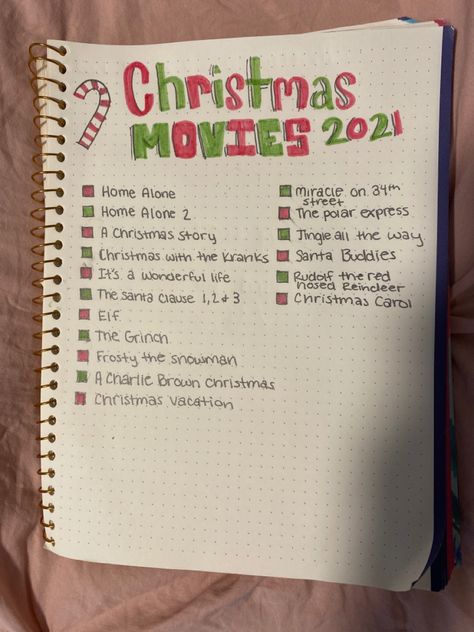 Christmas
MOVIES 2021
Home Alone
Home Alone 2
A Christmas Story
Christmas with the Kranks
It's a wonderful life
The Santa Clause 1, 2 & 3
Elf
The Grinch
Frosty the snowman
A Charlie Brown Christmas
Christmas Vacation
miracle on 34th
street
The polar express
Jingle all the way
Santa Buddies
Rudolf the red
nosed Reindeer
Christmas Carol